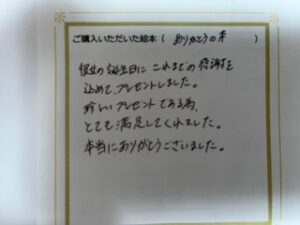 ご購入いただいた絵本( ありがとうの本 )
彼女の誕生日に これまでの 感謝を
込めて、プレゼントしました。
珍しいプレゼントである為、
とても 満足してくれました。
本当にありがとうございました。